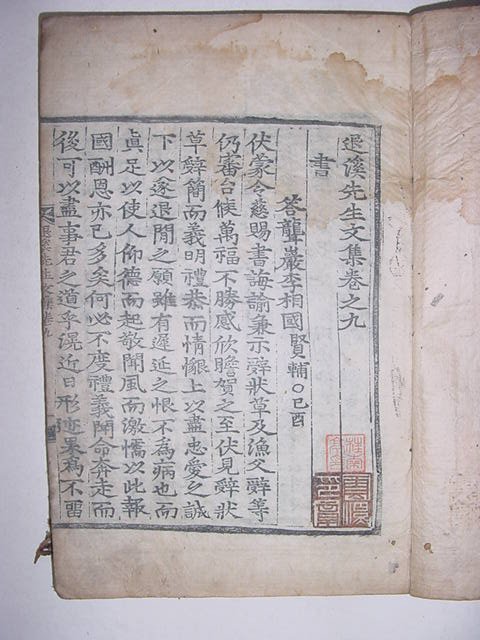 退溪先生文集卷之九
書
答聾巖李相國賢輔○己酉
伏蒙令慈賜書誨諭兼示辭狀草及漁父辭等
仍審台候萬福不勝感欣贍賀之至伏見辭狀
草辭簡而義明禮恭而情懇上以盡忠愛之誠
下以遂退閒之願雖有遲延之恨不爲病也而
眞足以使人仰德而起敬聞風而激懦以此報
國酬恩亦已多矣何必不度禮義聞命奔走而
後可以盡事君之道乎滉近日形迹果爲不置
退溪先生文集卷九